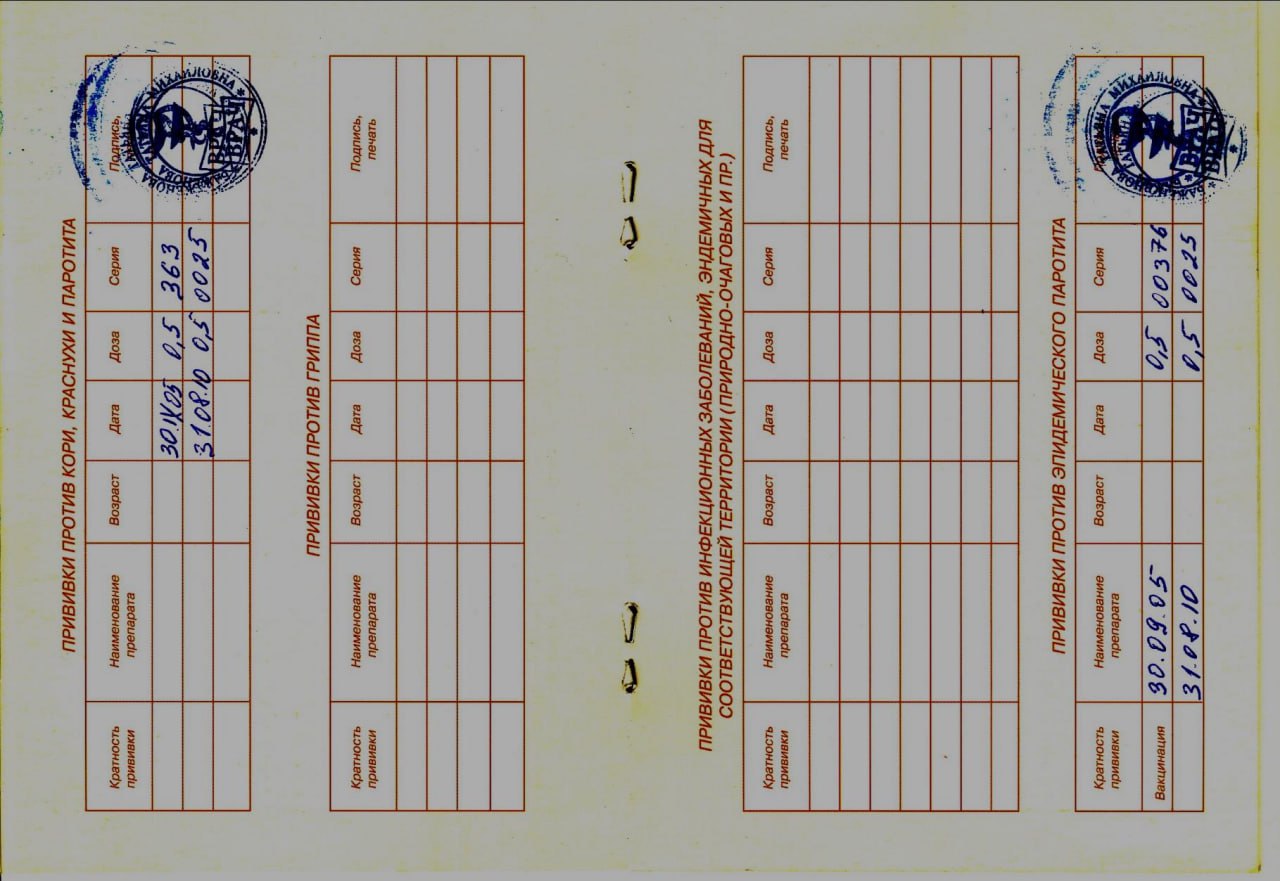 ПРИВИВКИ ПРОТИВ КОРИ, КРАСНУХИ И ПАРОТИТА
Кратность прививки Наименование препарата Возраст Дата Доза Серия Подпись,
30.IX05 0,5 363
31.08.10 0,5 0025
МИХАИЛОВНА
ВРАЧ
ВРАЧ
ПРИВИВКИ ПРОТИВ ГРИППА
Кратность прививки Наименование препарата Возраст Дата Доза Серия Подпись, печать
ПРИВИВКИ ПРОТИВ ИНФЕКЦИОННЫХ ЗАБОЛЕВАНИЙ, ЭНДЕМИЧНЫХ ДЛЯ
СООТВЕТСТВУЮЩЕЙ ТЕРРИТОРИИ (ПРИРОДНО-ОЧАГОВЫХ И ПР.)
Кратность прививки Наименование препарата Возраст Дата Доза Серия Подпись, печать
ПРИВИВКИ ПРОТИВ ЭПИДЕМИЧЕСКОГО ПАРОТИТА
Кратность прививки Наименование препарата Возраст Дата Доза Серия
Вакцинация 30.09.05 0,5 00376
31.08.10 0,5 0025
МИХАИЛОВНА
ВРАЧ
ВРАЧ